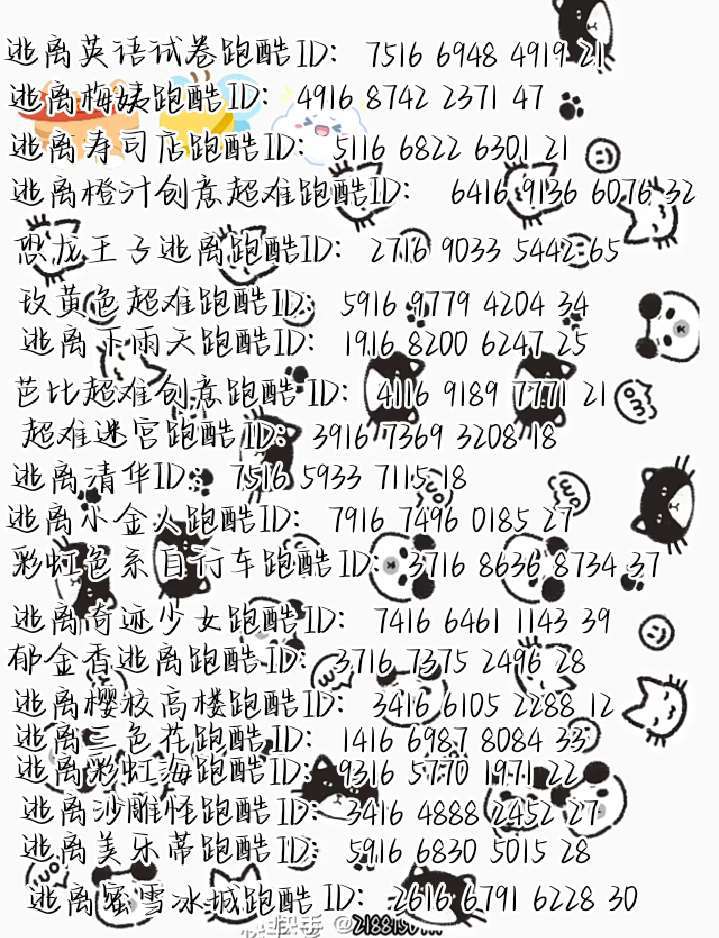 逃离英语试卷跑酷ID: 7516 6948 4919 21
逃离梅姨跑酷ID: 4916 8742 2371 47
逃离寿司店跑酷ID: 5116 6822 6301 21
逃离橙汁创意超难跑酷ID: 6416 9136 6076 32
恐龙王子逃离跑酷ID: 2716 9033 5442 65
玫黄色超难跑酷ID: 5916 9779 4204 34
逃离下雨天跑酷ID: 1916 8200 6247 25
芭比超难创意跑酷ID: 4116 9189 7771 21
超难迷宫跑酷ID: 3916 7369 3208 18
逃离清华ID: 7516 5933 7115 18
逃离小金人跑酷ID: 7916 7496 0185 27
彩虹色系自行车跑酷ID: 3716 8636 8734 37
逃离奇迹少女跑酷ID: 7416 6461 1143 39
郁金香逃离跑酷ID: 3716 7375 2496 28
逃离樱校高楼跑酷ID: 3416 6105 2288 12
逃离三色花跑酷ID: 1416 6987 8084 33
逃离彩虹海跑酷ID: 9316 5770 1971 22
逃离沙雕怪跑酷ID: 3416 4888 2452 27
逃离美乐蒂跑酷ID: 5916 6830 5015 28
逃离蜜雪冰城跑酷ID: 2616 6791 6228 30
快手